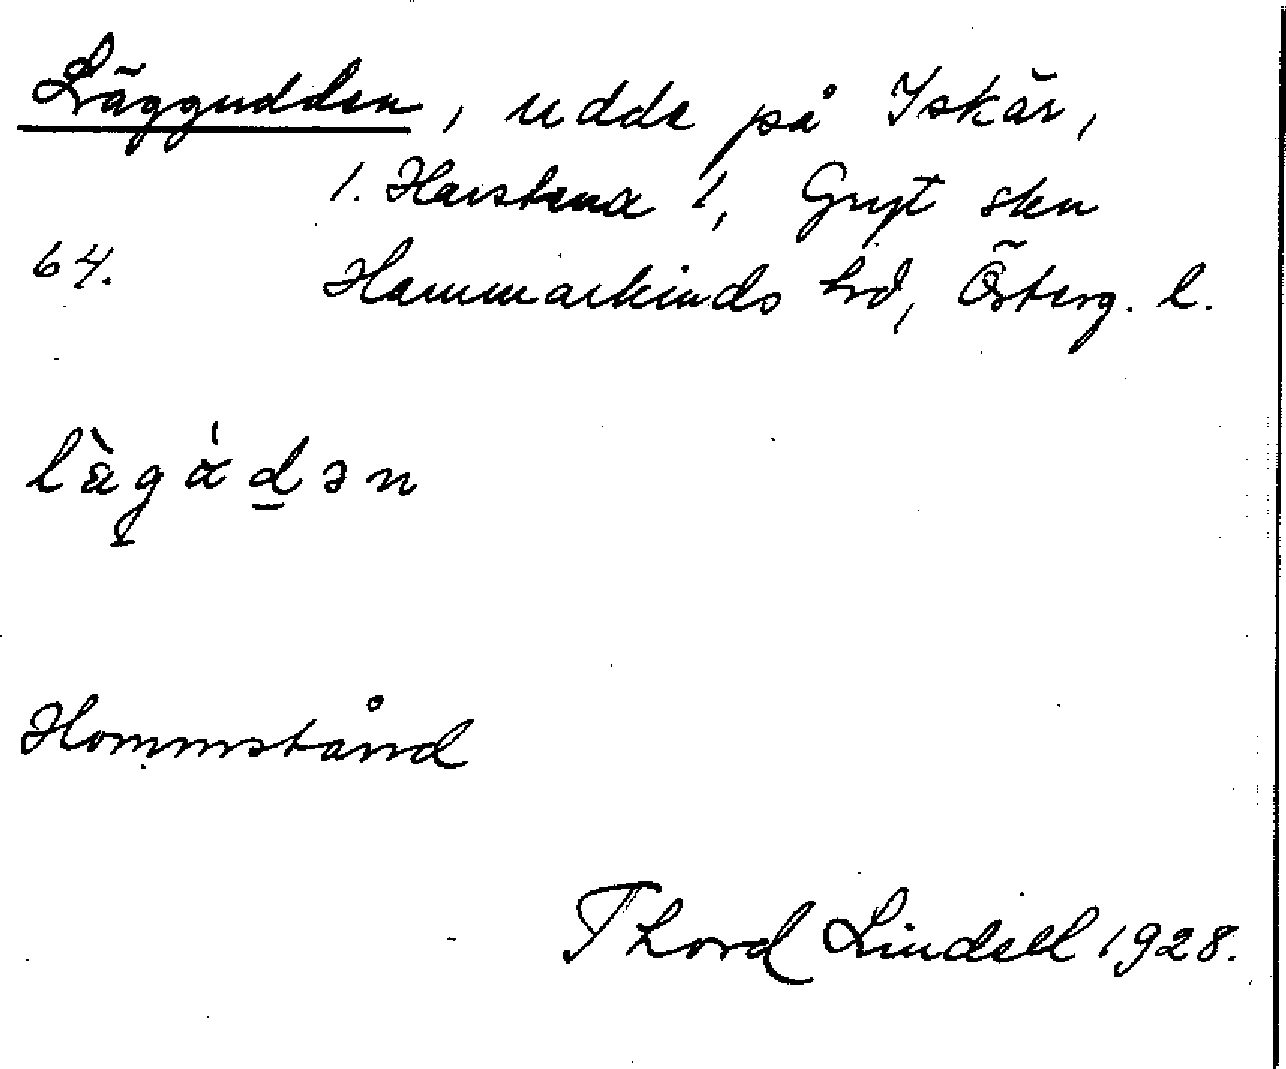 Läggudden, udde på Iskär,
1. Harstena 1, Gryt skn
64. Hammarkinds hd, Österg. l.
Hommstånd
Thord Lindell 1928.